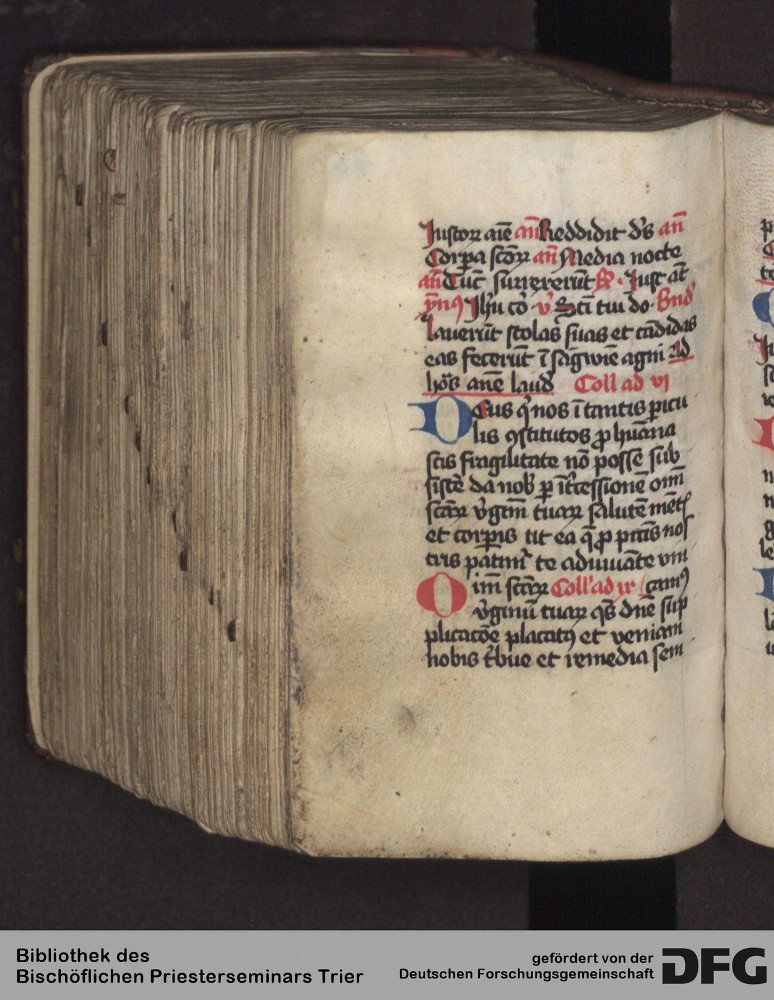 Iustor aīe añ Reddidit d̄s añ
Corpa scōꝝ añ Media nocte
añ Tūc surrexerūt Iust at
ymꝰ Ihū co v̄ Scī tui do
lauerūt stolas suas et cādidas
eas fecerūt ī sāgwīe agni Ad
hōs añe laud Coll ad vi
Deus q nos ī tantis picu
lis ꝯstitutos ꝓ humāna
scis fragilitate nō posse sub
sistē da nob p īt͛cessionē om̄
scāꝝ v̄gim̄ tuaꝝ salutē mēt
et corpis ut ea q̄ ꝓ pctīs nos
tris patim͛ te adiuuāte vin
Oīm scāꝝ Coll ad ix camꝰ
v̄ginū tuaꝝ qs dn̄e sup
plicacōe placatꝰ et veniam
nobis t͛bue et remedia sem
Bibliothek des
Bischöflichen Priesterseminars Trier
gefördert von der
Deutschen Forschungsgemeinschaft
DFG